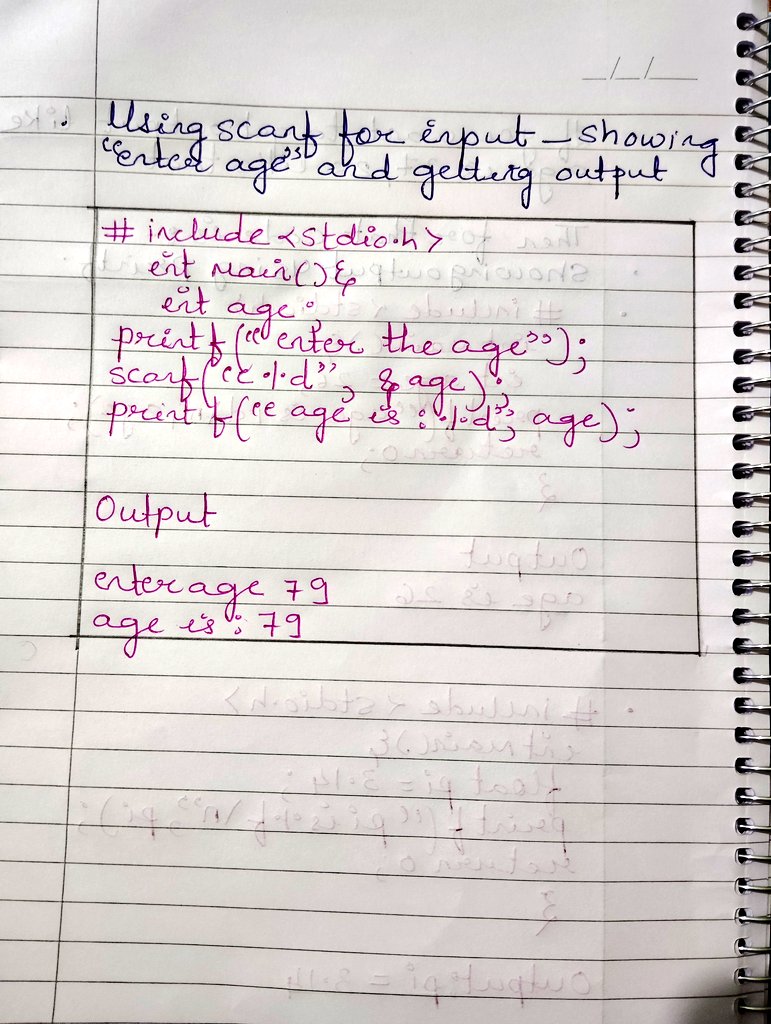 _/_/__
. Using scanf for input - showing
"enter age" and getting output
# include <stdio.h>
int main(){
int age;
printf("enter the age");
scanf("%d", &age);
printf("age is : %d", age);
Output
enter age 79
age is : 79